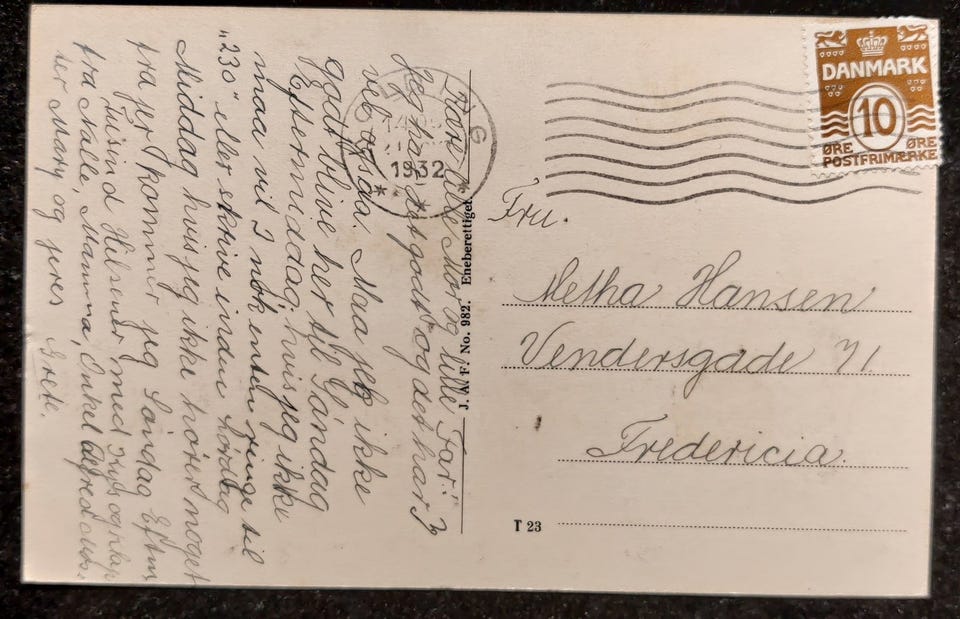 Kære lille Mor og lille Far!
Jeg har det godt og det har I
vel ogsaa. Maa jeg ikke
godt blive her til Søndag
Eftermiddag, hvis jeg ikke
maa vil I nok enten ringe til
"230" eller skrive inden Lørdag
Middag hvis jeg ikke hører noget
fra jer kommer jeg Søndag Efterm
Tusind Hilsener med Kys og klap
fra Nalle, Mamma, Onkel Alfred
ter Mary og jeres
Grete.
J. A. F. No. 982. Eneberettiget.
1932
DANMARK
10
ØRE ØRE
POSTFRIMÆRKE
Fru.
Metha Hansen
Vendersgade 71.
Fredericia.
T 23